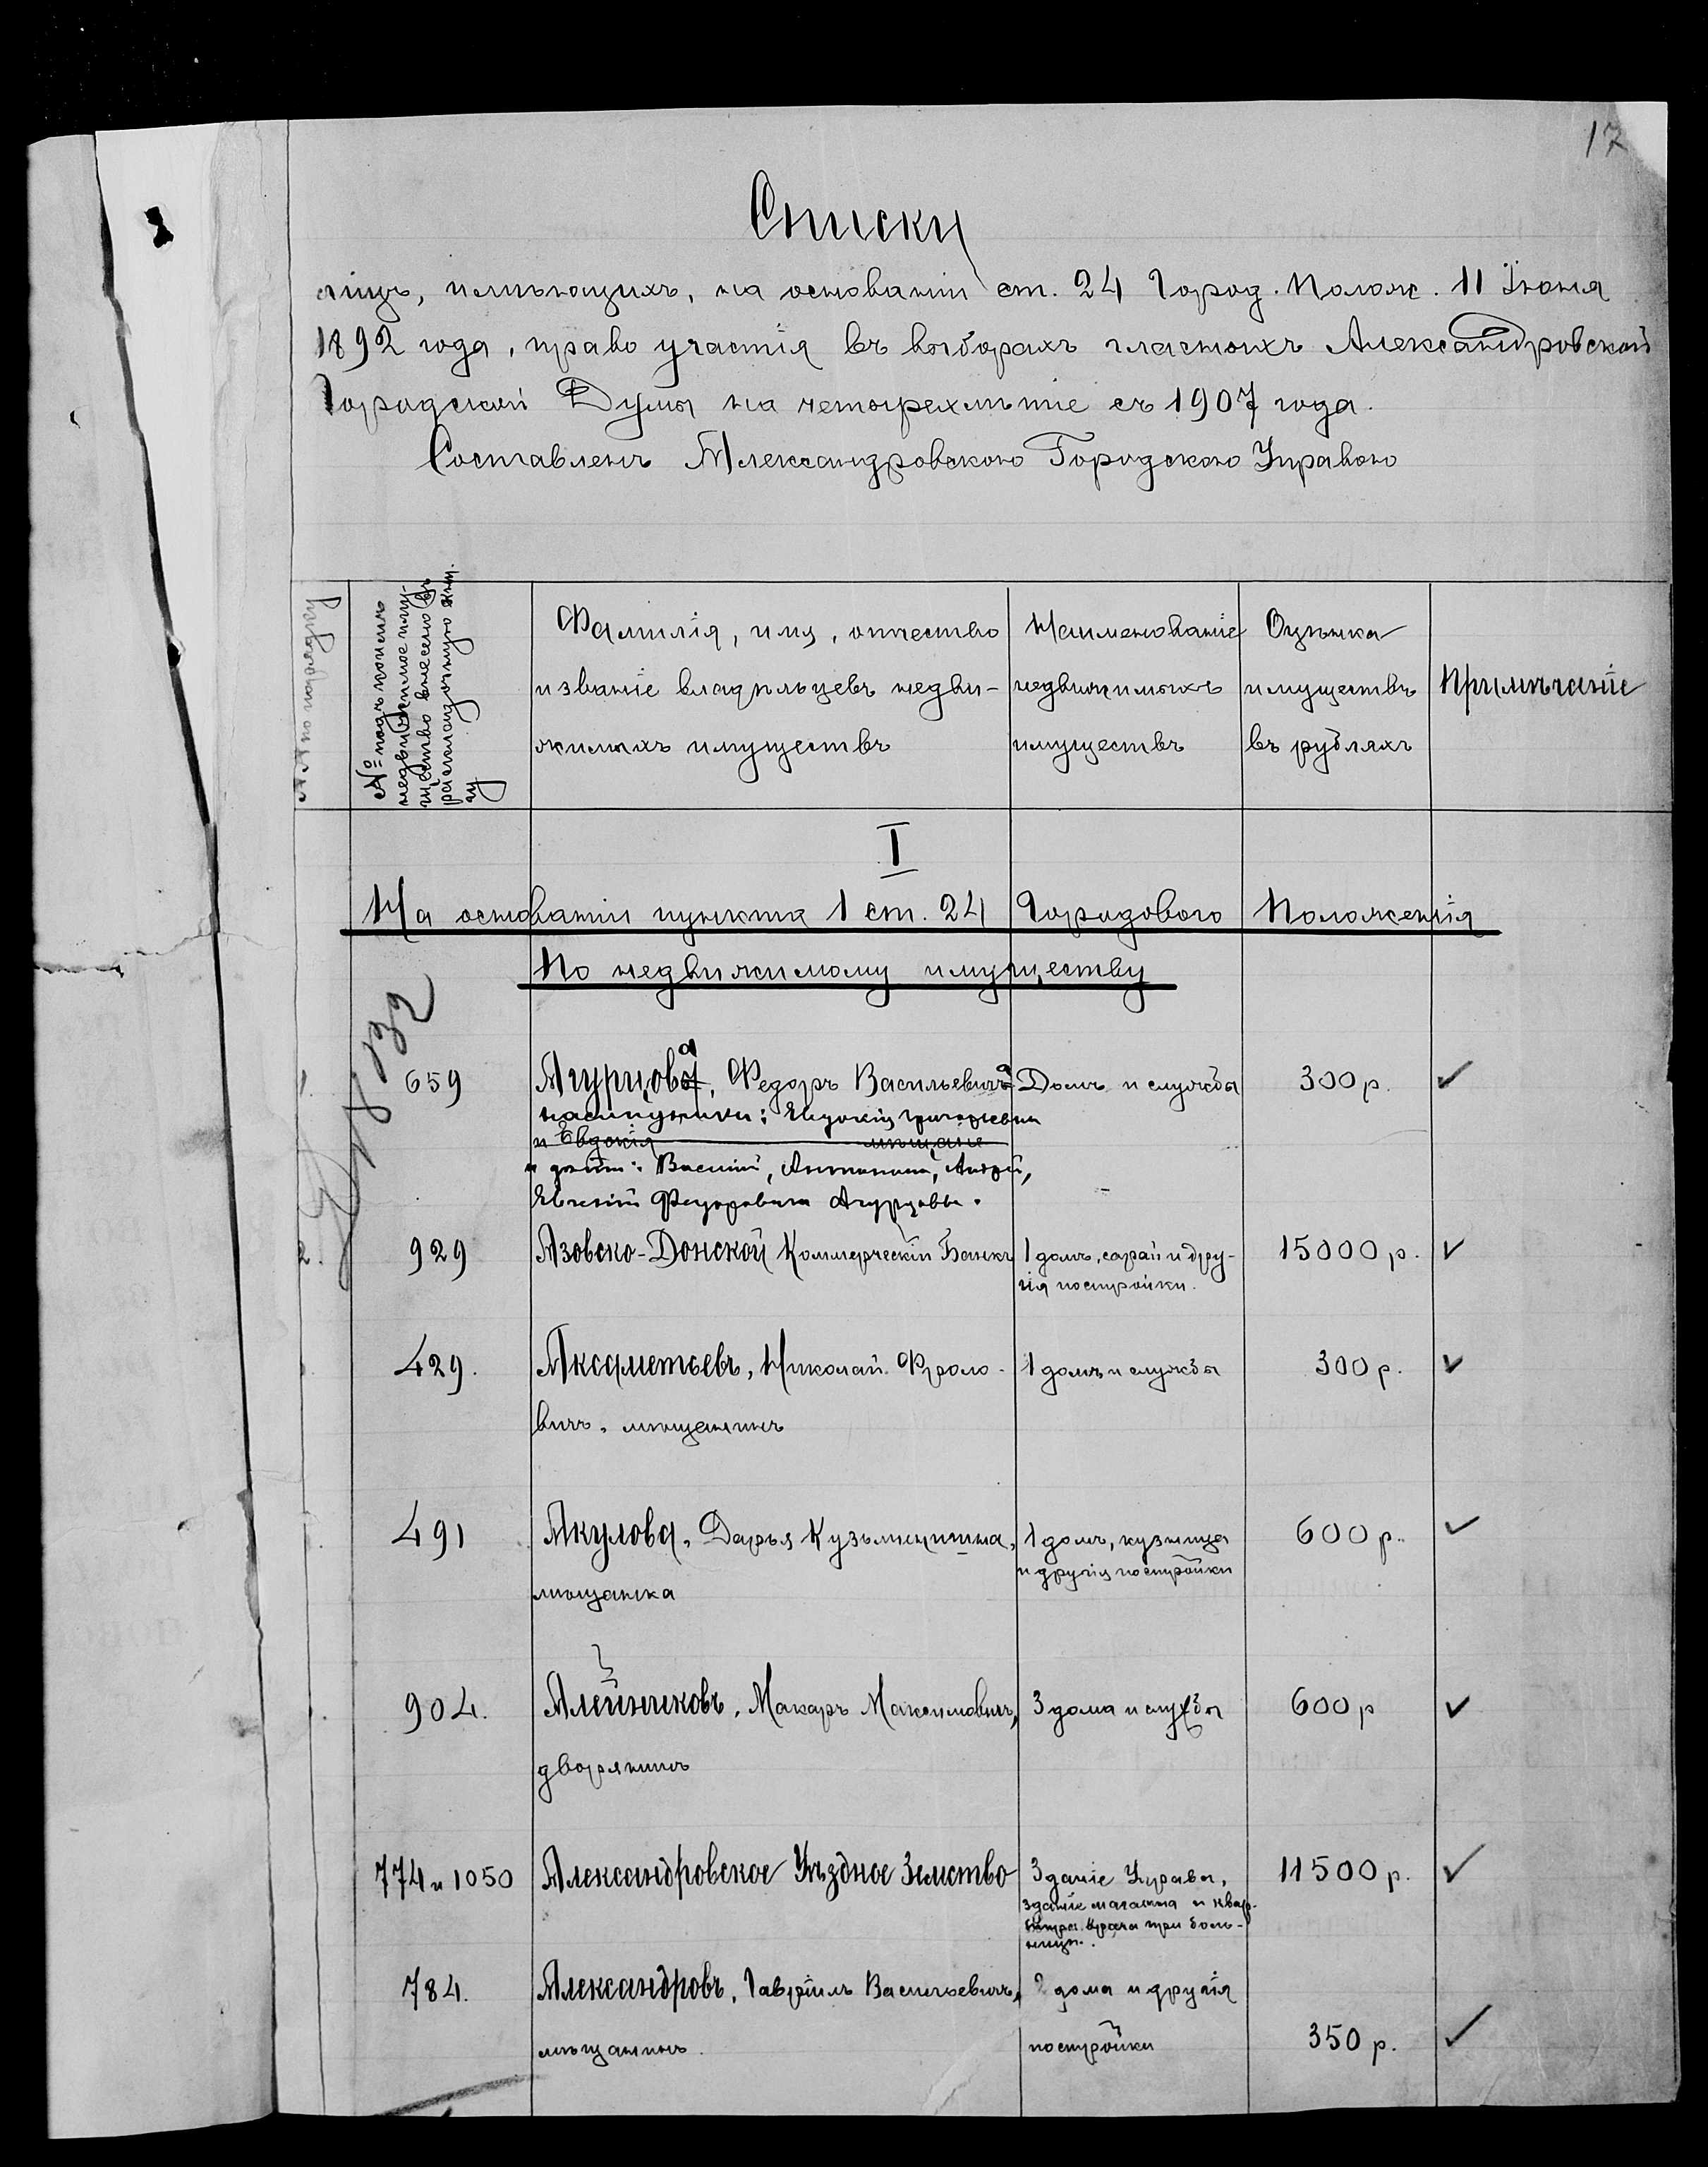 17
Списки
лицъ, имѣющихъ, на основаніи ст. 24 Город. Полож. 11 Іюня
1892 года, право участія въ выборахъ гласныхъ Александровской
Городской Думы на четырехлѣтіе съ 1907 года.
Составленъ Александровскою Городскою Управою
№№ по порядку
№ подъ коимъ
недвижимое иму-
щество внесено въ
раскладочную кни-
гу
Фамилія, имя, отчество
и званіе владѣльцевъ недви-
жимыхъ имуществъ
Наименованіе
недвижимыхъ
имуществъ
Оцѣнка
имуществъ
въ рубляхъ
Примѣчаніе
I
На основаніи пункта 1 ст. 24 Городового Положенія
По недвижимому имуществу
659 Агурцова, Федоръ Васильевича Домъ и службы 300 р. ✓
наслѣдники: Евдокія Григорьевна
и Евдокія мѣщане
и дѣти: Василій, Антонина, Андрей,
Евгеній Федоровичи Агурцовы.
2. 929 Азовско-Донской Коммерческій Банкъ 1 домъ, сарай и дру- 15000 р. ✓
гія постройки.
429. Аксаметьевъ, Николай Фроло- 1 домъ и службы 300 р. ✓
вичъ, мѣщанинъ
491 Акулова, Дарья Кузьминишна, 1 домъ, кузница 600 р. ✓
мѣщанка и другія постройки
904. Алейниковъ, Макаръ Максимовичъ, 3 дома и службы 600 р ✓
дворянинъ
774 и 1050 Александровское Уѣздное Земство Зданіе Управы, 11500 р. ✓
зданіе магазина и квар-
тира врача при боль-
ницѣ.
784. Александровъ, Гавріилъ Васильевичъ, 2 дома и другія
мѣщанинъ. постройки 350 р. ✓